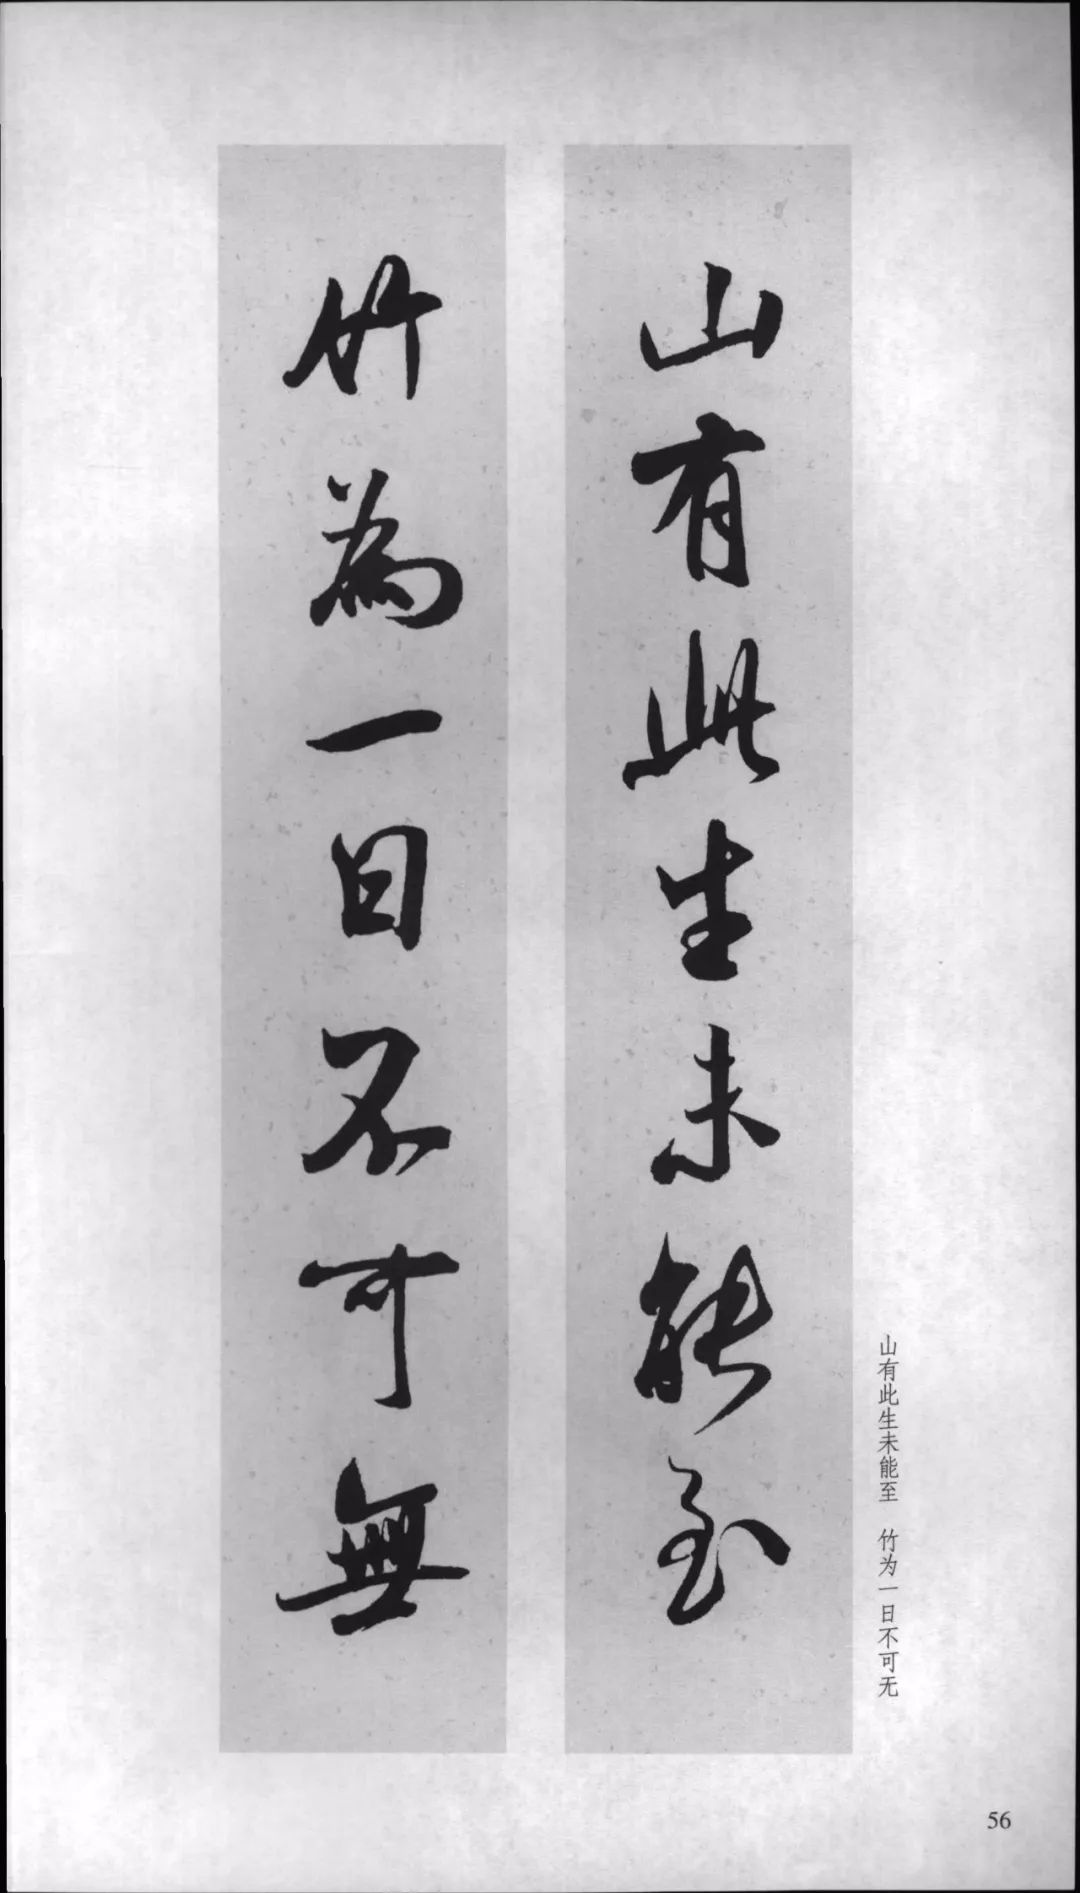 山有此生未能至
竹為一日不可無
山有此生未能至 竹为一日不可无
56